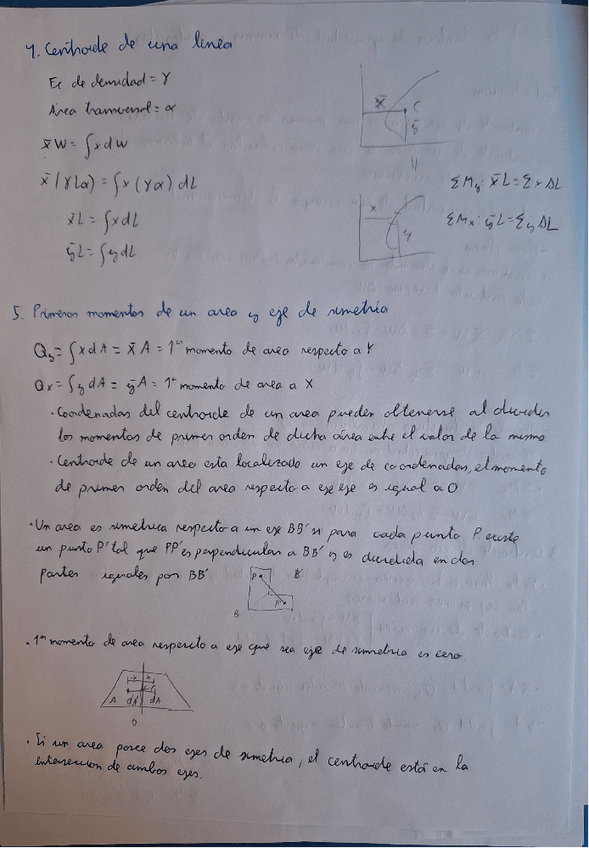 4. Centroide de una linea
Ec de densidad = γ
Área transversal = α
x̄W = ∫xdW
x̄(γLα) = ∫x(γα)dL
x̄L = ∫xdL
ȳL = ∫ydL
x̄ C
ȳ
"
x
y
ΣMy: x̄L = ΣxΔL
ΣMx: ȳL = ΣyΔL
5. Primeros momentos de un area y eje de simetria
Qy = ∫xdA = x̄A = 1er momento de area respecto a Y
Qx = ∫ydA = ȳA = 1er momento de area a X
· Coordenadas del centroide de un area pueden obtenerse al dividir
los momentos de primer orden de dicha área entre el valor de la misma
· Centroide de un area esta localizado un eje de coordenadas, el momento
de primer orden del area respecto a ese eje es igual a 0
· Un area es simetrica respecto a un eje BB' si para cada punto P existe
un punto P' tal que PP' es perpendicular a BB' y es dividida en dos
partes iguales por BB'
P B'
B P'
· 1er momento de area respecto a eje que sea eje de simetria es cero.
x x
A dA' dA
0
· Si un area posee dos ejes de simetria, el centroide está en la
interseccion de ambos ejes.